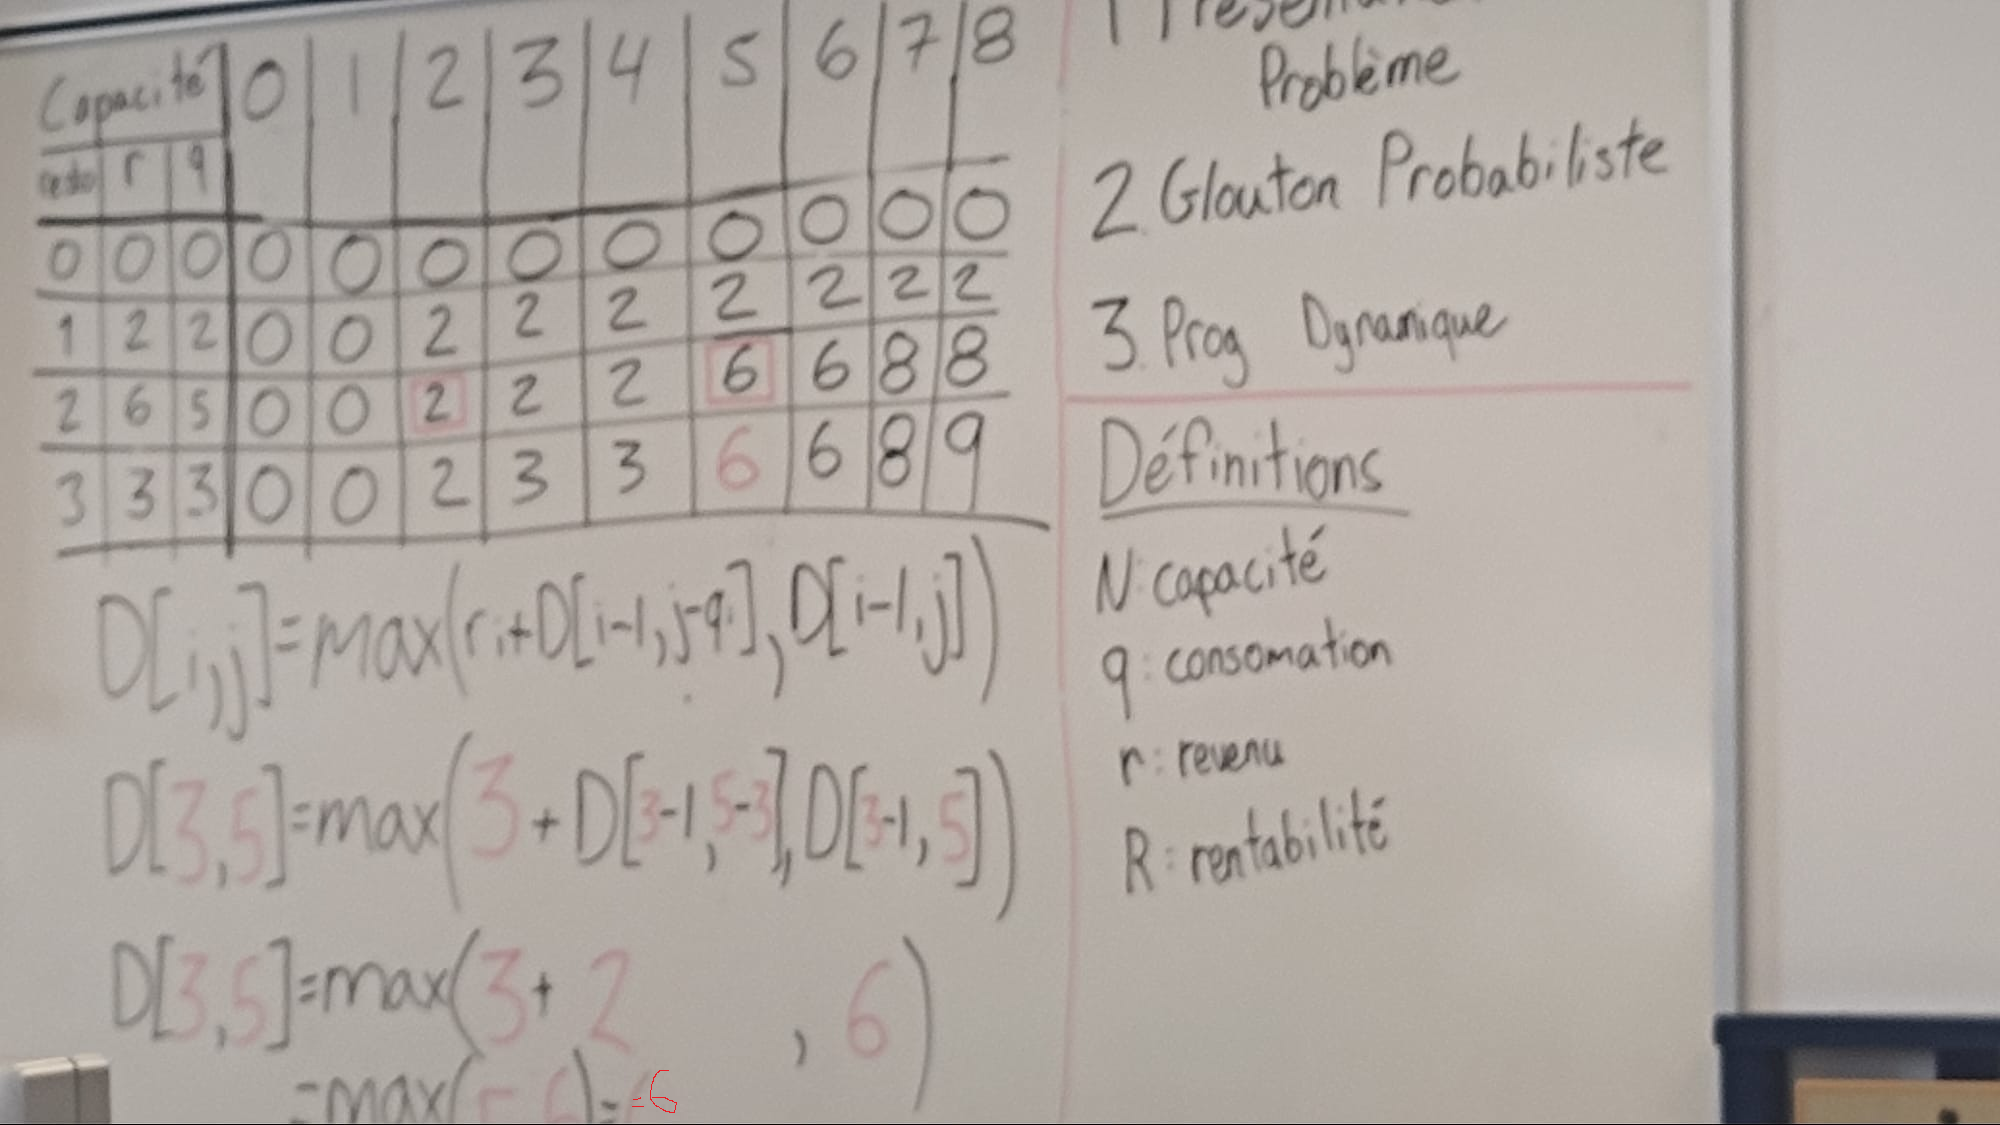 Capacité 0 1 2 3 4 5 6 7 8
resto r q
0 0 0 0 0 0 0 0 0 0 0 0
1 2 2 0 0 2 2 2 2 2 2 2
2 6 5 0 0 2 2 2 6 6 8 8
3 3 3 0 0 2 3 3 6 6 8 9
D[i,j]=max(ri+D[i-1,j-qi],D[i-1,j])
D[3,5]=max(3+D[3-1,5-3],D[3-1,5])
D[3,5]=max(3+2,6)
=max(5 6)==6
Problème
2. Glouton Probabiliste
3. Prog Dynamique
Définitions
N: capacité
q: consomation
r: revenu
R: rentabilité